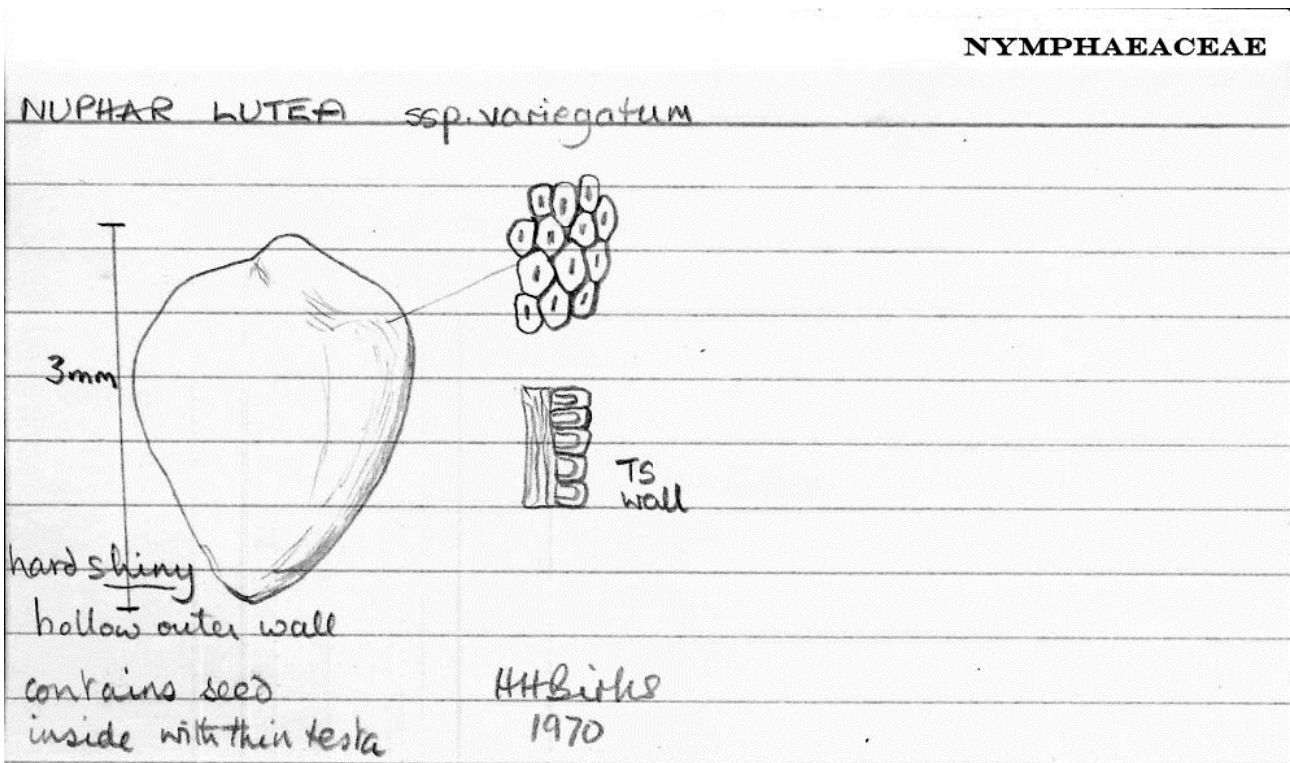 NYMPHAEACEAE
NUPHAR LUTEA ssp. variegatum
3mm
TS
wall
hard shiny
hollow outer wall
contains seed
inside with thin testa
HHBirks
1970